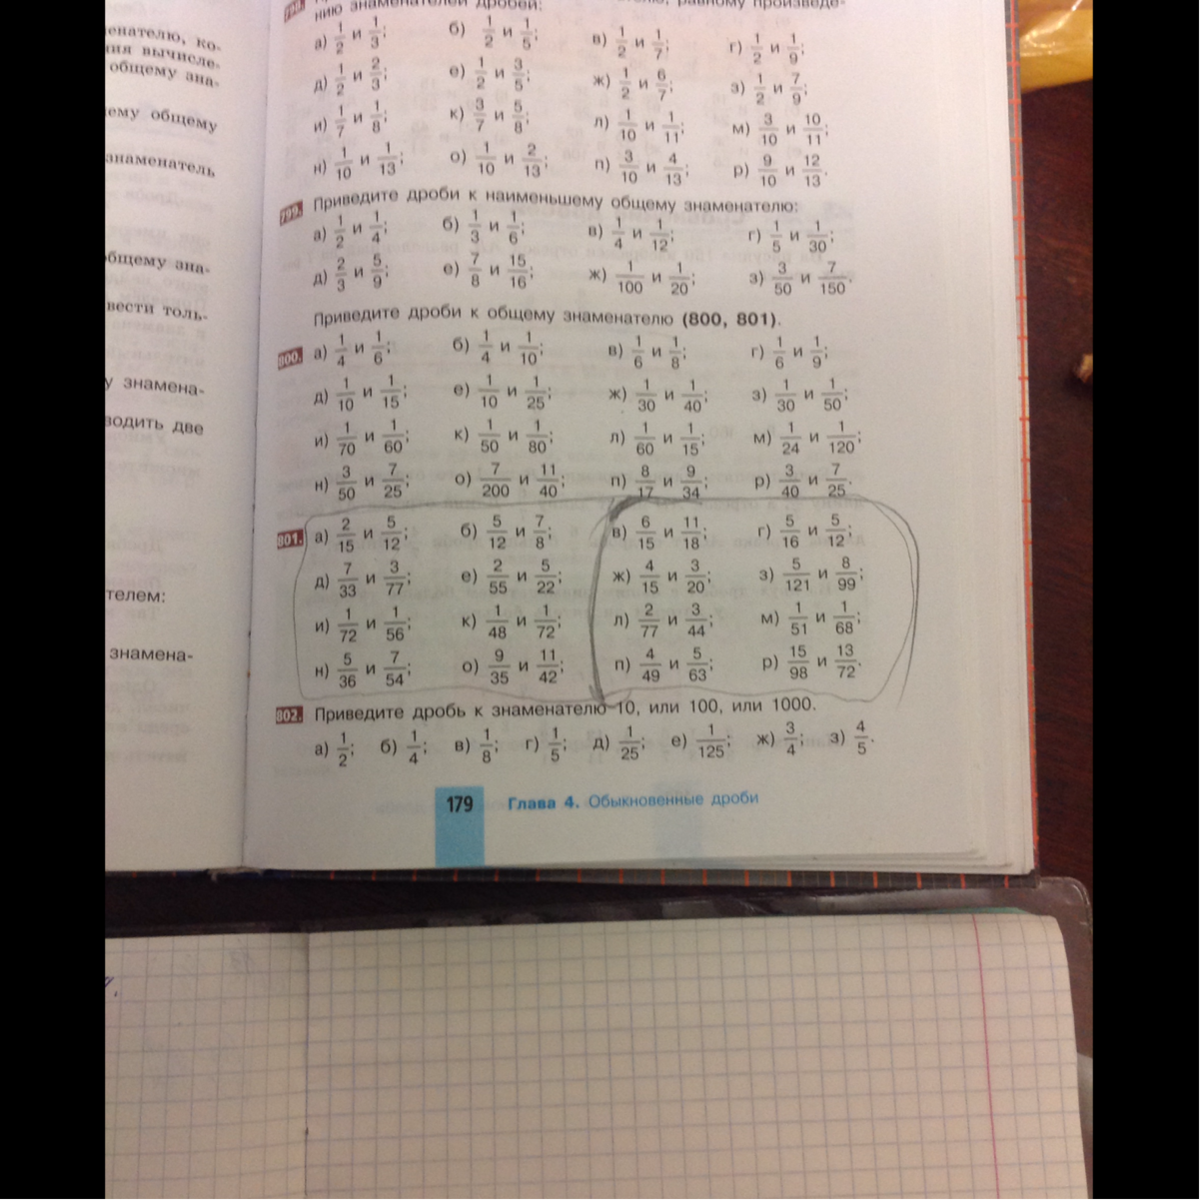 менателю, ко-
ния вычисле-
общему зна-
ему общему
знаменатель
общему зна-
вести толь-
у знамена-
водить две
телем:
знамена-
798.
нию знаменателей дробей:
а) 1/2 и 1/3; б) 1/2 и 1/5; в) 1/2 и 1/7; г) 1/2 и 1/9;
д) 1/2 и 2/3; е) 1/2 и 3/5; ж) 1/2 и 6/7; з) 1/2 и 7/9;
и) 1/7 и 1/8; к) 3/7 и 5/8; л) 1/10 и 1/11; м) 3/10 и 10/11;
н) 1/10 и 1/13; о) 1/10 и 2/13; п) 3/10 и 4/13; р) 9/10 и 12/13.
799. Приведите дроби к наименьшему общему знаменателю:
а) 1/2 и 1/4; б) 1/3 и 1/6; в) 1/4 и 1/12; г) 1/5 и 1/30;
д) 2/3 и 5/9; е) 7/8 и 15/16; ж) 1/100 и 1/20; з) 3/50 и 7/150.
Приведите дроби к общему знаменателю (800, 801).
800. а) 1/4 и 1/6; б) 1/4 и 1/10; в) 1/6 и 1/8; г) 1/6 и 1/9;
д) 1/10 и 1/15; е) 1/10 и 1/25; ж) 1/30 и 1/40; з) 1/30 и 1/50;
и) 1/70 и 1/60; к) 1/50 и 1/80; л) 1/60 и 1/15; м) 1/24 и 1/120;
н) 3/50 и 7/25; о) 7/200 и 11/40; п) 8/17 и 9/34; р) 3/40 и 7/25.
801. а) 2/15 и 5/12; б) 5/12 и 7/8; в) 6/15 и 11/18; г) 5/16 и 5/12;
д) 7/33 и 3/77; е) 2/55 и 5/22; ж) 4/15 и 3/20; з) 5/121 и 8/99;
и) 1/72 и 1/56; к) 1/48 и 1/72; л) 2/77 и 3/44; м) 1/51 и 1/68;
н) 5/36 и 7/54; о) 9/35 и 11/42; п) 4/49 и 5/63; р) 15/98 и 13/72.
802. Приведите дробь к знаменателю 10, или 100, или 1000.
а) 1/2; б) 1/4; в) 1/8; г) 1/5; д) 1/25; е) 1/125; ж) 3/4; з) 4/5.
179 Глава 4. Обыкновенные дроби